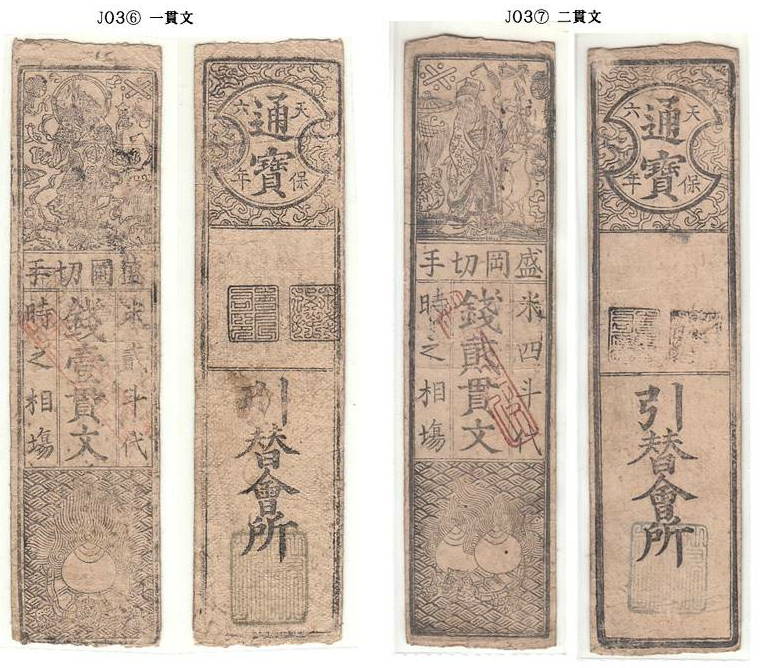 J03⑥ 一貫文
盛岡切手
米貳斗代
錢壹貫文
時之相塲
通寶
天保六年
引替會所
J03⑦ 二貫文
盛岡切手
米四斗代
錢貳貫文
時之相塲
通寶
天保六年
引替會所